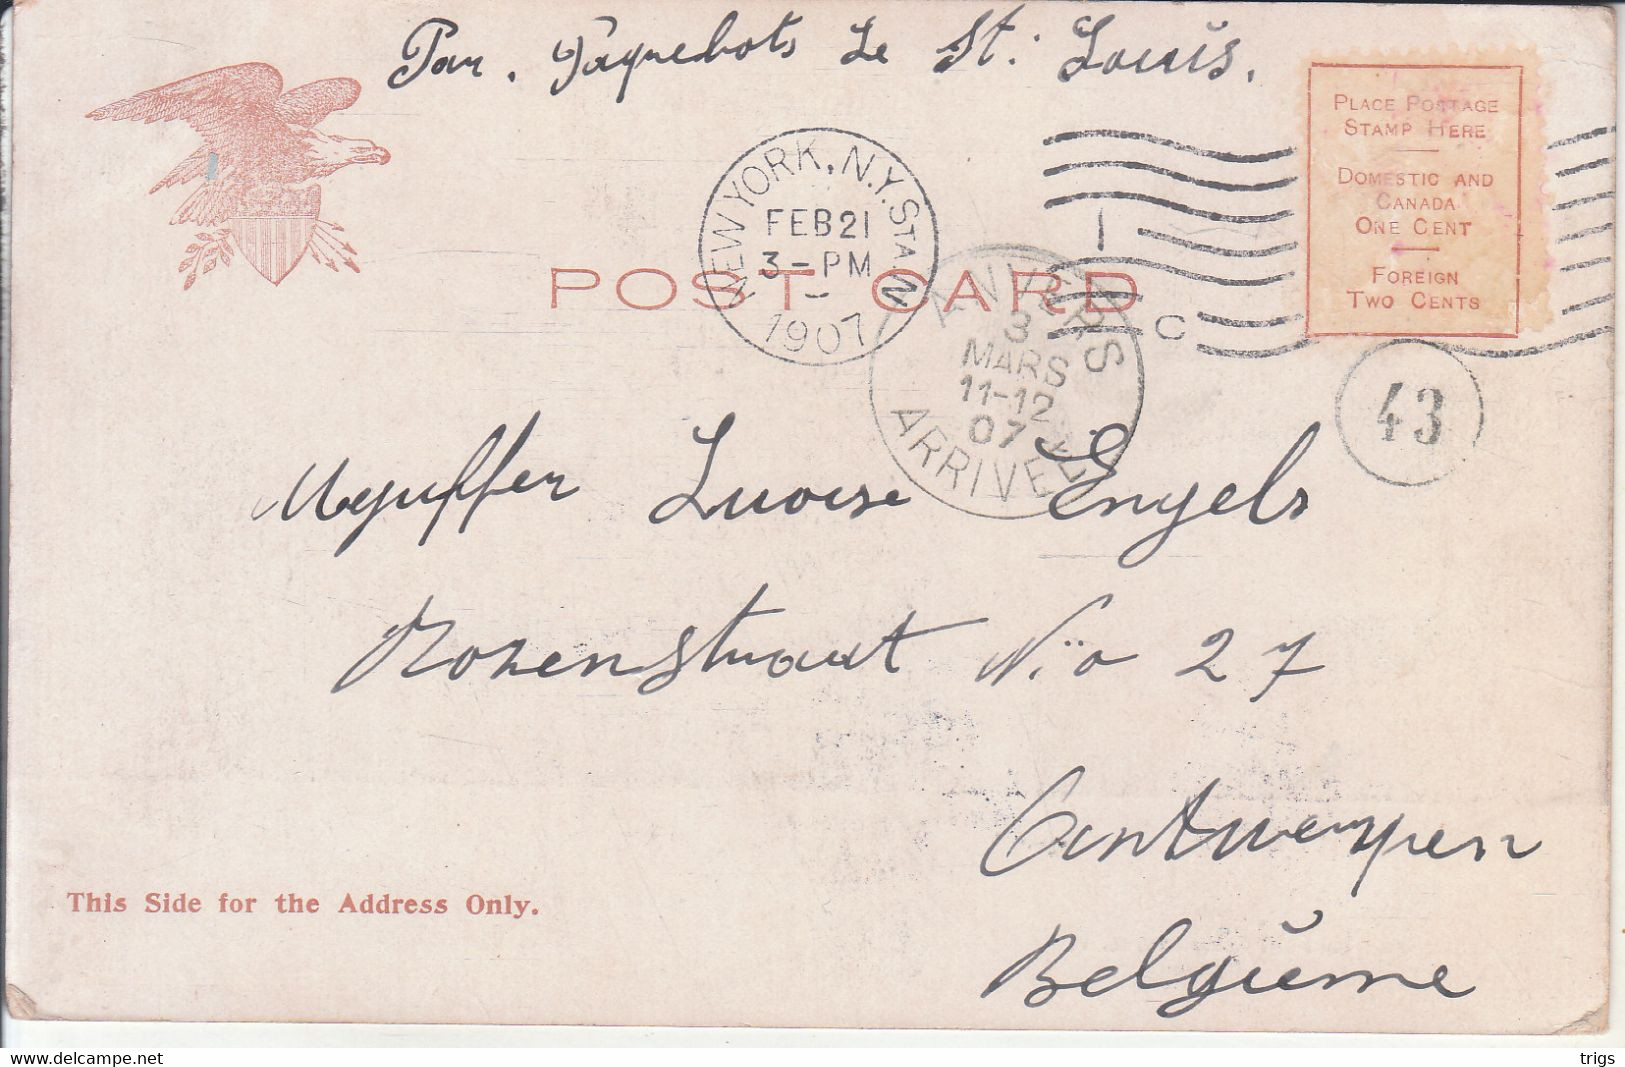 Par. Paquebots Le St. Louis.
PLACE POSTAGE
STAMP HERE
DOMESTIC AND
CANADA
ONE CENT
FOREIGN
TWO CENTS
NEW YORK, N.Y. STA. N
FEB 21
3 - PM
1907
1
C
POST CARD
ANVERS
3
MARS
11-12
07
ARRIVEE
43
Mejuffer Luoise Engels
Rozenstraat No 27
Antwerpen
Belgiüme
This Side for the Address Only.
www.delcampe.net
trigs